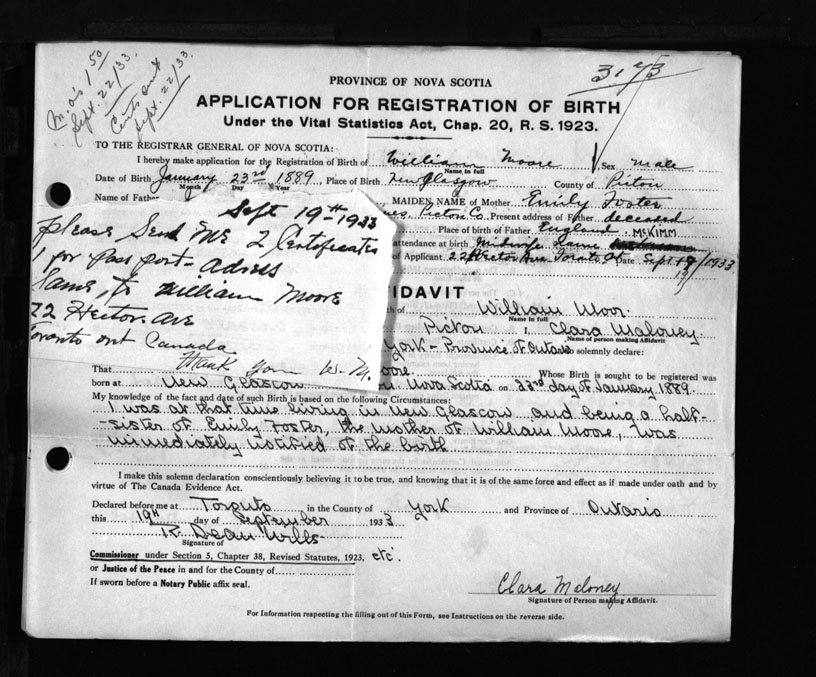 M.O's 1 50
Sept. 22/33.
Certs out
Sept. 22/33.
3173
PROVINCE OF NOVA SCOTIA
APPLICATION FOR REGISTRATION OF BIRTH
Under the Vital Statistics Act, Chap. 20, R. S. 1923.
TO THE REGISTRAR GENERAL OF NOVA SCOTIA:
I hereby make application for the Registration of Birth of William Moore Sex male
Name in full
Date of Birth January 23rd 1889 Place of Birth New Glasgow County of Picton
Month Day Year
Name of Father MAIDEN NAME of Mother Emily Foster
Picton Co. Present address of Father deceased
Place of Birth of Father England McKIMM
attendance at birth midwife
of Applicant 22 Hector Ave Toronto Ont Date Sept 19/1933
Sept 19th 1933
please Send Me 2 Certificates
1 for pass port - Adress
Same, to William Moore
22 Hector Ave
Toronto ont Canada
Thank You W. M.
FIDAVIT
th of William Moor
Name in full
Picton I, Clara Maloney
Name of person making Affidavit
York - Province of Ontario solemnly declare:
That oore Whose Birth is sought to be registered was
born at New Glascow Nova Scotia on 23rd day of January 1889.
My knowledge of the fact and date of such Birth is based on the following Circumstances:
I was at that time living in New Glascow and being a half-
sister of Emily Foster, the mother of William Moore, was
immediately notified of the birth
I make this solemn declaration conscientiously believing it to be true, and knowing that it is of the same force and effect as if made under oath and by
virtue of The Canada Evidence Act.
Declared before me at Toronto in the County of York and Province of Ontario
this 19th day of September 1933
R. Dean Wills
Signature of
Commissioner under Section 5, Chapter 38, Revised Statutes, 1923, etc.
or Justice of the Peace in and for the County of
If sworn before a Notary Public affix seal.
Clara Maloney
Signature of Person making Affidavit.
For Information respecting the filling out of this Form, see Instructions on the reverse side.